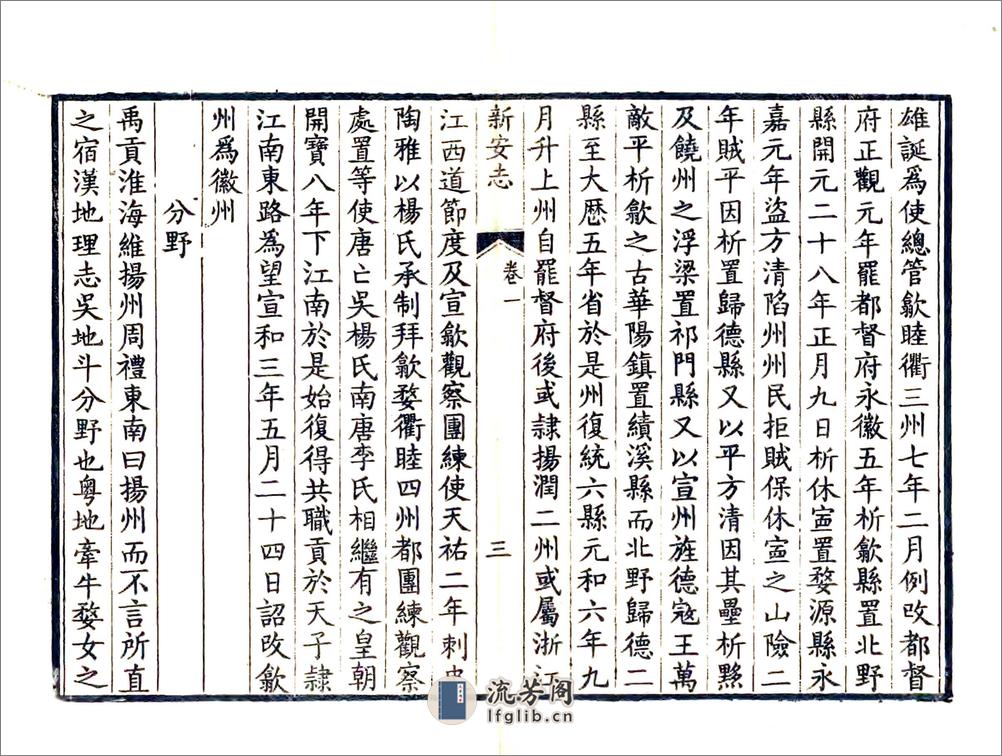 雄誕爲使總管歙睦衢三州七年二月例改都督
府正觀元年罷都督府永徽五年析歙縣置北野
縣開元二十八年正月九日析休寍置婺源縣永
嘉元年盜方清陷州州民拒賊保休寍之山險二
年賊平因析置歸德縣又以平方清因其壘析黟
及饒州之浮梁置祁門縣又以宣州旌德寇王萬
敵平析歙之古華陽鎮置績溪縣而北野歸德二
縣至大歷五年省於是州復統六縣元和六年九
月升上州自罷督府後或隷揚潤二州或屬浙江
新安志 卷一 三
江西道節度及宣歙觀察團練使天祐二年刺史
陶雅以楊氏承制拜歙婺衢睦四州都團練觀察
處置等使唐亡吳楊氏南唐李氏相繼有之皇朝
開寶八年下江南於是始復得共職貢於天子隷
江南東路爲望宣和三年五月二十四日詔改歙
州爲徽州
分野
禹貢淮海維揚州周禮東南曰揚州而不言所直
之宿漢地理志吳地斗分野也粵地牽牛婺女之
流芳阁
lfglib.cn